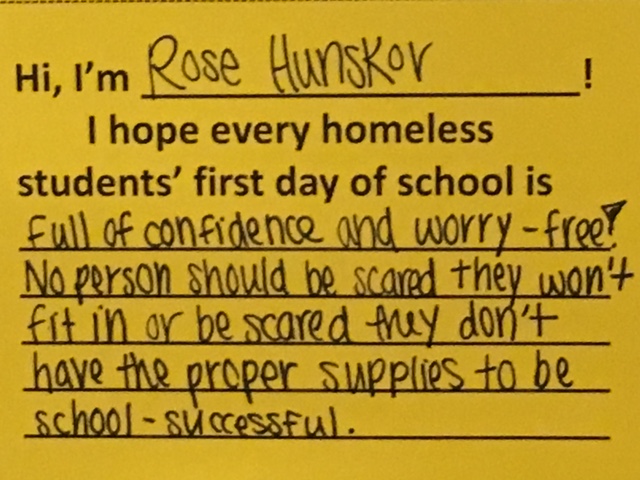 Hi, I'm Rose Hunskor !
I hope every homeless
students' first day of school is
full of confidence and worry-free!
No person should be scared they won't
fit in or be scared they don't
have the proper supplies to be
school-successful.